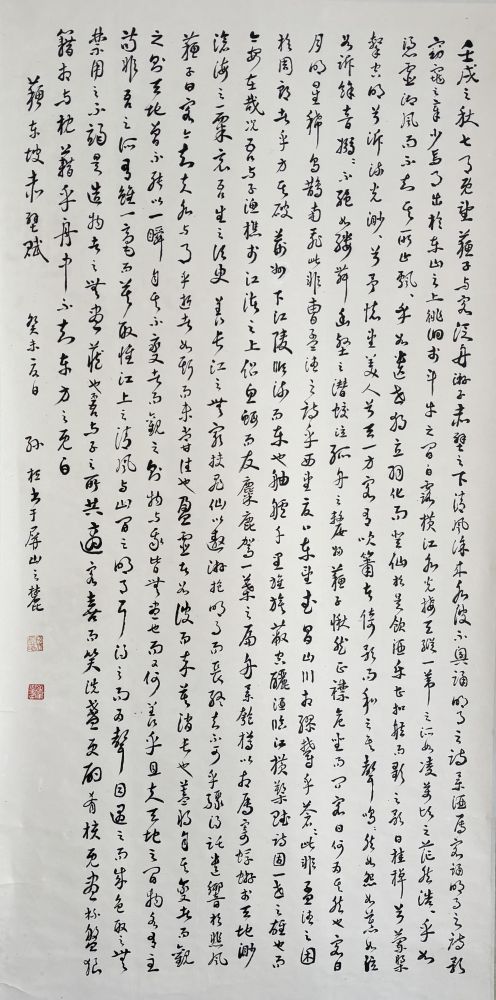 壬戌之秋七月既望蘇子与客泛舟游於赤壁之下清風徐來水波不興誦明月之詩舉酒屬客誦明月之詩歌
窈窕之章少焉月出於東山之上徘徊於斗牛之間白露橫江水光接天縱一葦之所如凌萬頃之茫然浩浩乎如
馮虛御風而不知其所止飄飄乎如遺世獨立羽化而登仙於是飲酒樂甚扣舷而歌之歌曰桂棹兮蘭槳
擊空明兮泝流光渺渺兮予懷望美人兮天一方客有吹簫者倚歌而和之其聲嗚嗚然如怨如慕如泣
如訴餘音嫋嫋不絕如縷舞幽壑之潛蛟泣孤舟之嫠婦蘇子愀然正襟危坐而問客曰何為其然也客曰
月明星稀烏鵲南飛此非曹孟德之詩乎西望夏口東望武昌山川相繆鬱乎蒼蒼此非孟德之困
於周郎者乎方其破荊州下江陵順流而東也舳艫千里旌旗蔽空釃酒臨江橫槊賦詩固一世之雄也而
今安在哉況吾与子漁樵於江渚之上侶魚蝦而友麋鹿駕一葉之扁舟舉匏樽以相屬寄蜉蝣於天地渺
滄海之一粟哀吾生之須臾羨長江之無窮挾飛仙以遨游抱明月而長終知不可乎驟得託遺響於悲風
蘇子曰客亦知夫水与月乎逝者如斯而未嘗往也盈虛者如彼而卒莫消長也蓋將自其變者而觀
之則天地曾不能以一瞬自其不變者而觀之則物与我皆無盡也而又何羨乎且夫天地之間物各有主
苟非吾之所有雖一毫而莫取惟江上之清風与山間之明月耳得之而為聲目遇之而成色取之無
禁用之不竭是造物者之無盡藏也吾与子之所共適客喜而笑洗盞更酌肴核既盡杯盤狼
籍相与枕藉乎舟中不知東方之既白
蘇東坡赤壁賦 癸未夏日 孫 書于屏山之麓